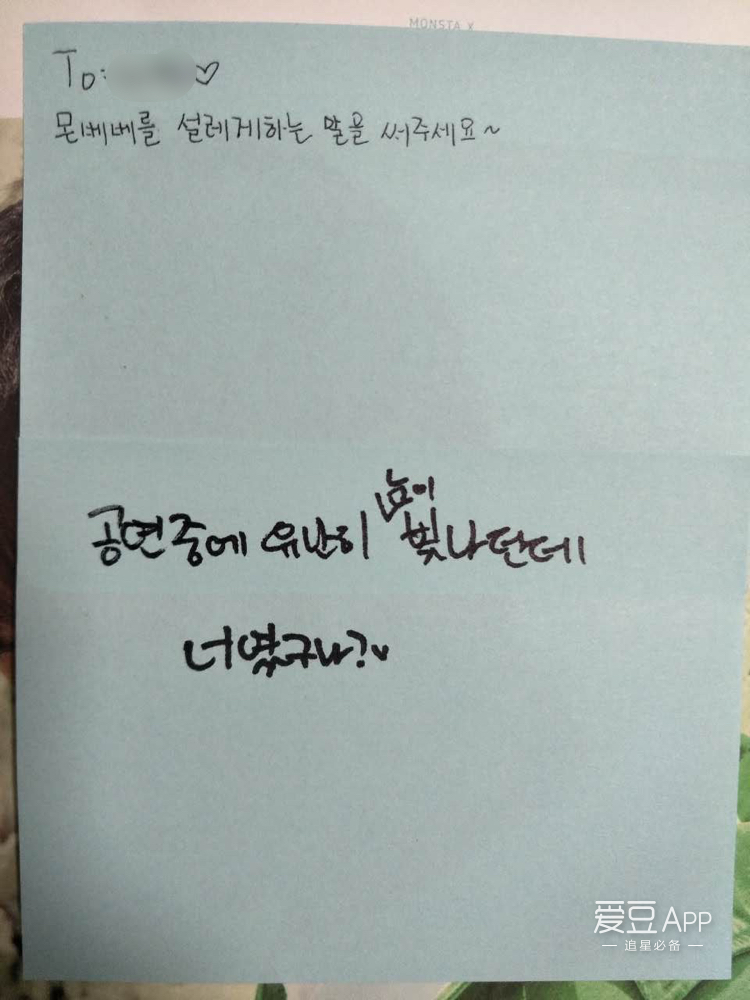 MONSTA X
To: ♡
몬베베를 설레게하는 말을 써주세요~
공연중에 유난히 눈이 빛나던데
너였구나?♥
爱豆APP
— 追星必备 —